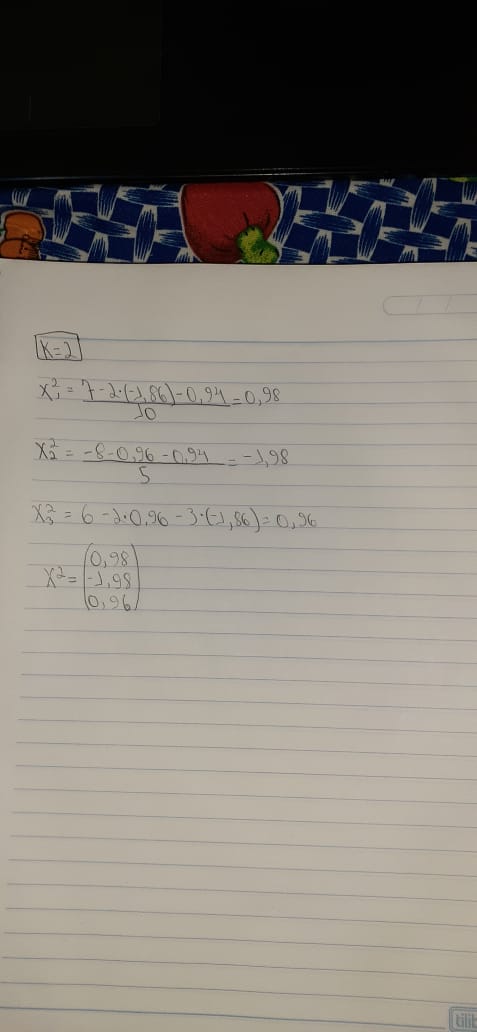 K=2
X₁² = 7-2·(-1,86)-0,94 / 10 = 0,98
X₂² = -8-0,96-0,94 / 5 = -1,98
X₃² = 6-2·0,96-3·(-1,86) = 0,96
X² = (0,98
-1,98
0,96)